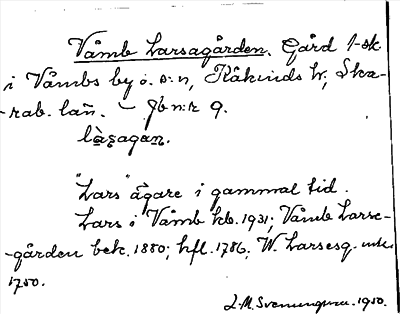 Våmb Larsagården. Gård 1 sk
i Våmbs by o. s:n, Kåkinds hr, Ska-
-rab. län. – Jb n:r 9.
là̱ʂagaɳ.
"Lars" ägare i gammal tid.
Lars i Våmb kb. 1931; Våmb Larse-
-gården bek. 1880; hfl. 1786; W. Larsesg.
1750.
J.M. 1950.